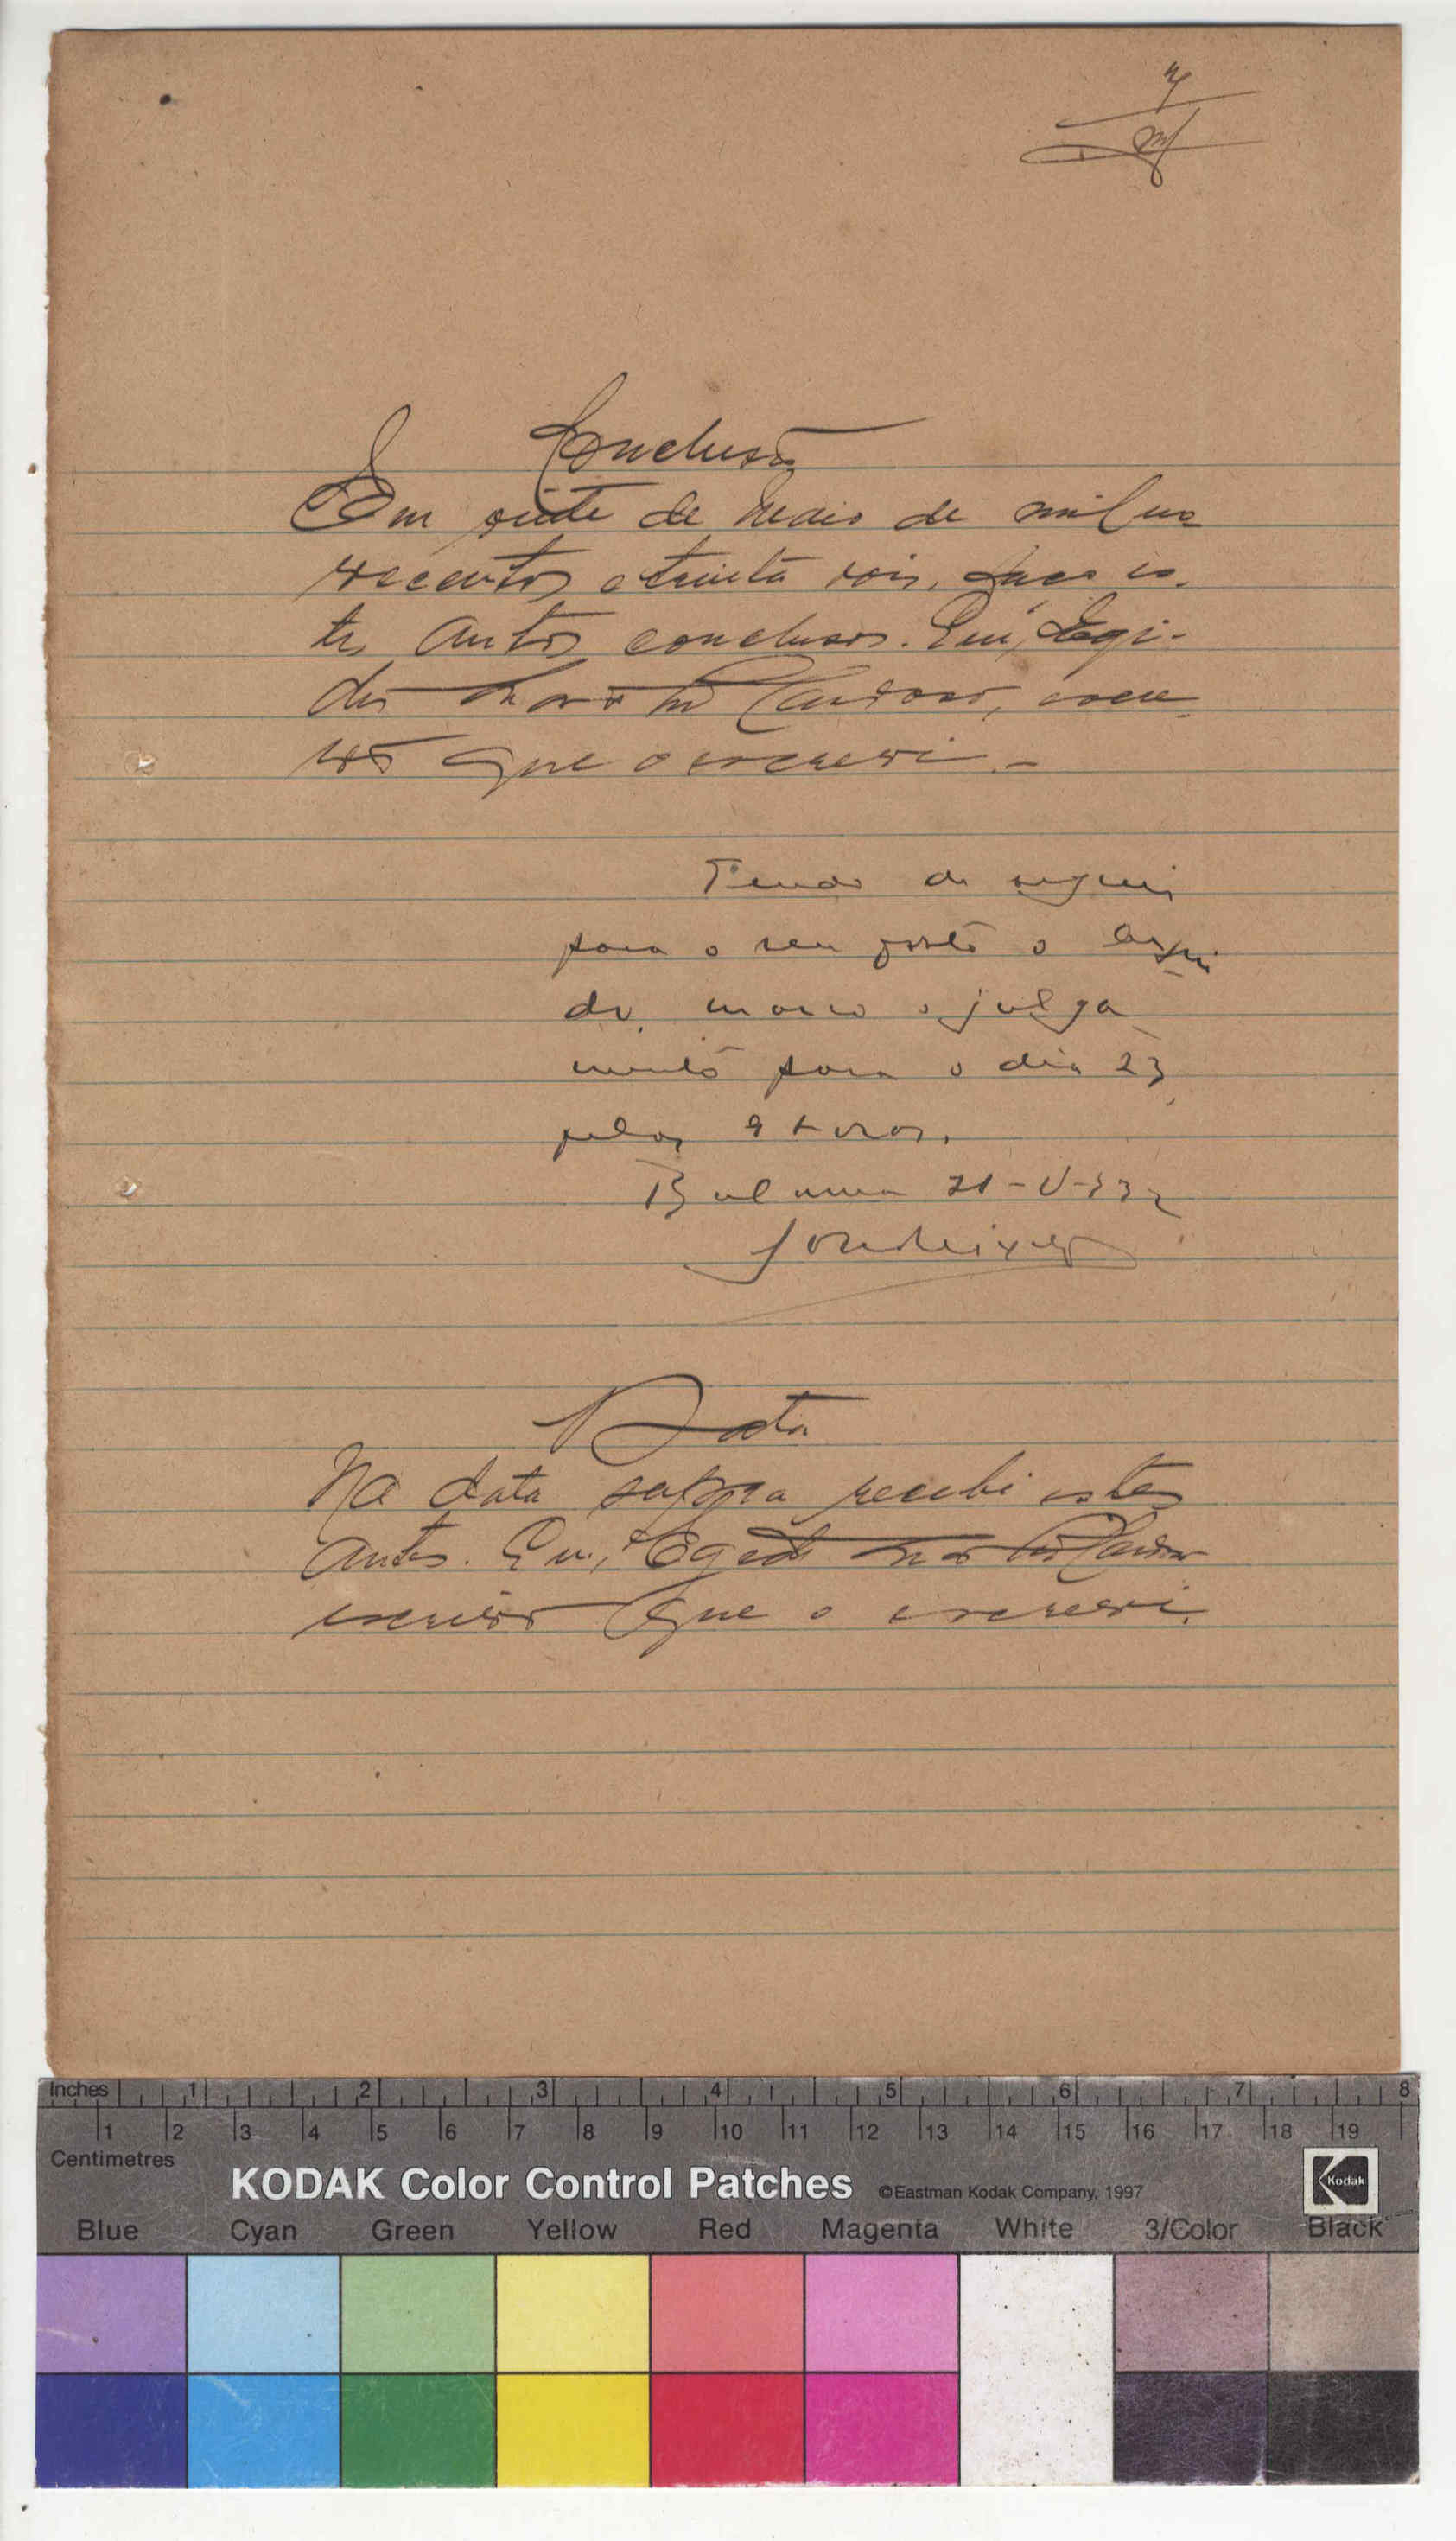 Conclusão
Em sete de Maio de mil no
vecentos e trinta e dois, faço es-
tes autos conclusos. Eu, Egi-
dio Cardoso, escri-
vão que o escrevi.-
Tendo de seguir
para o seu posto o argui
do, marco o julga
mento para o dia 23,
pelas 9 horas.
Bolama 21-V-932
Data
Na data supra recebi estes
autos. Eu, Egidio Cardoso
escrivão que o escrevi.
Inches 1 2 3 4 5 6 7 8
1 2 3 4 5 6 7 8 9 10 11 12 13 14 15 16 17 18 19
Centimetres
KODAK Color Control Patches ©Eastman Kodak Company, 1997 Kodak
Blue Cyan Green Yellow Red Magenta White 3/Color Black